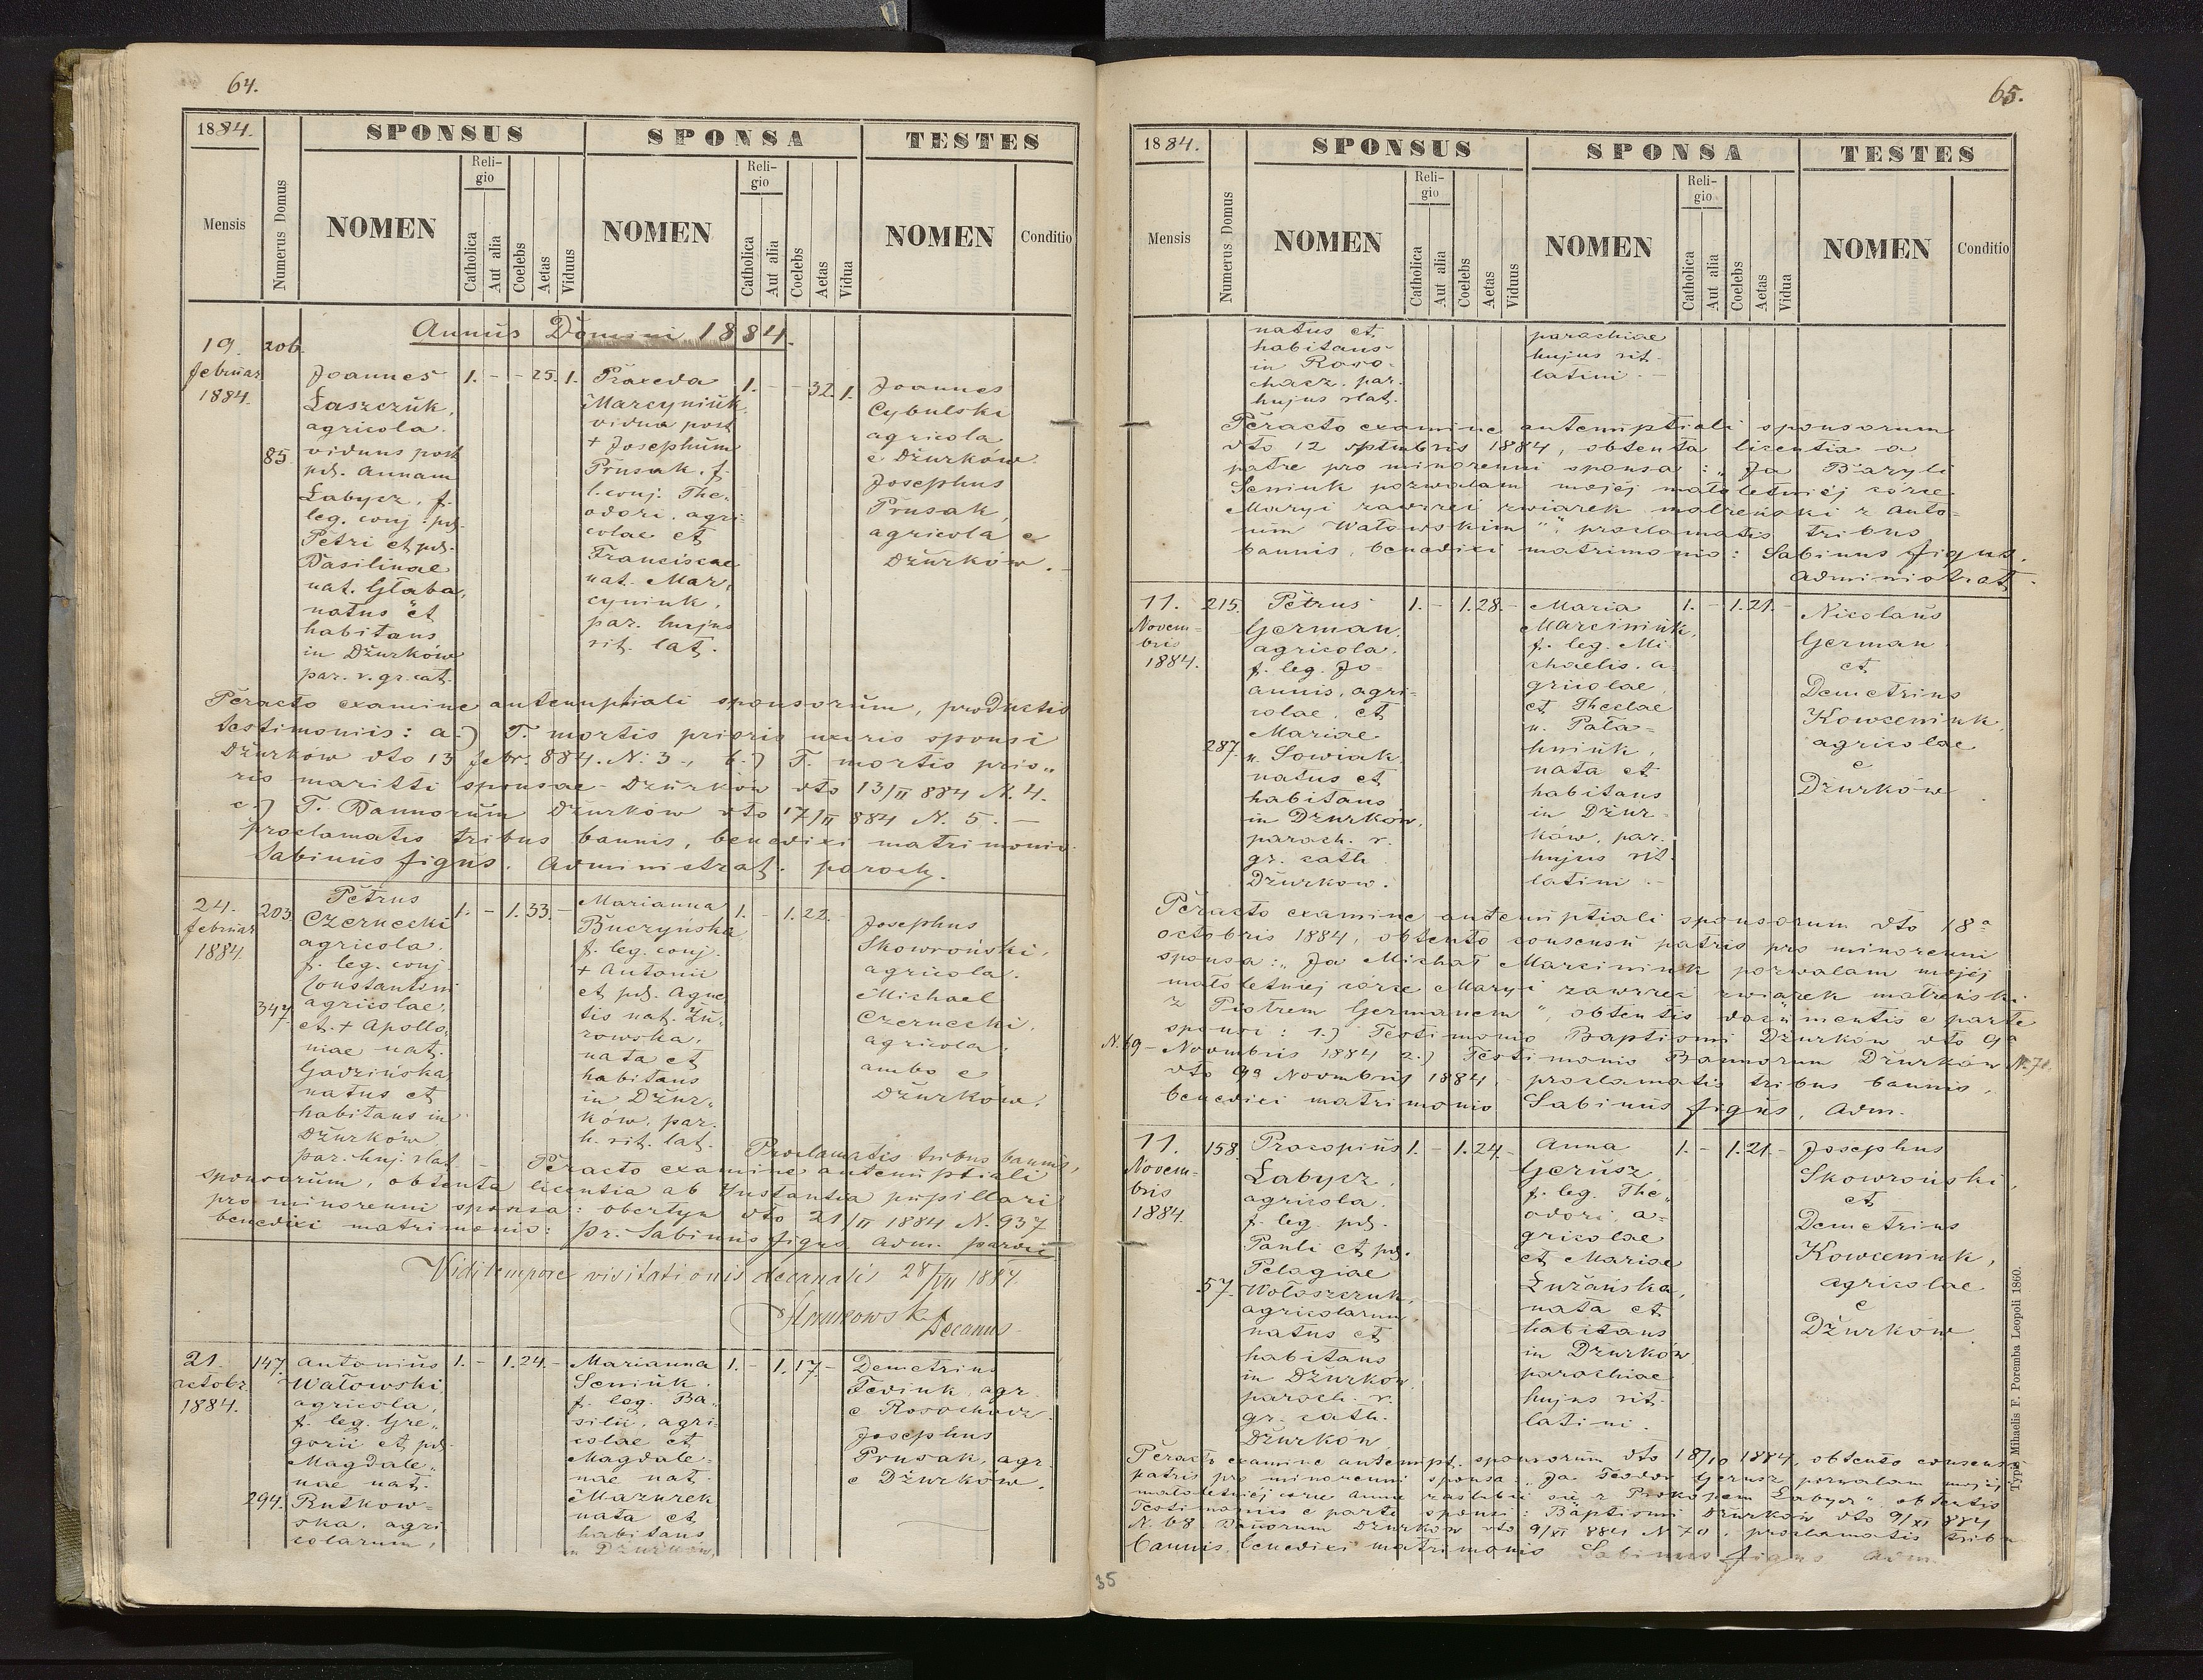 64.
1884.
SPONSUS
SPONSA
TESTES
Mensis
Numerus Domus
NOMEN
Religio
Catholica
Aut alia
Coelebs
Aetas
Viduus
NOMEN
Religio
Catholica
Aut alia
Coelebs
Aetas
Vidua
NOMEN
Conditio
Annus Domini 1884.
19.
februar.
1884.
206.
85
Joannes
Łaszczuk,
agricola.
viduus post
pd. Annam
Łabycz, f.
leg. conj. pd.
Petri et pd.
Basilinae
nat. Głaba,
natus et
habitans
in Dżurków
par. r. gr. cat.
1. - - 25. 1.
Praxeda
Marcyniuk,
vidua post
+ Josephum
Prusak, f.
l. conj. The-
odori, agri-
colae et
Franciscae
nat. Mar-
cyniuk,
par. hujus
rit. lat.
1. - - 32. 1.
Joannes
Cybulski
agricola
e Dżurków.
Josephus
Prusak,
agricola e
Dżurków.
Peracto examine antenuptiali sponsorum, productis
testimoniis: a.) T. mortis prioris uxoris sponsi
Dżurków dto 13 febr. 884. N. 3., b.) T. mortis prio„
ris maritti sponsae - Dżurków dto 13/II 884 N. 4.
c.) T. Bannorum Dżurków dto 17/II 884 N. 5. —
proclamatis tribus bannis, benedixi matrimonio
Sabinus Figus. Administrat. paroch.
24.
februar
1884.
203.
347
Petrus
Czernecki
agricola.
f. leg. conj.
Constantini
agricolae,
et + Apollo-
niae nat.
Gadzińska,
natus et
habitans in
Dżurków
par. huj. rlat.
1. - 1. 33. -
Marianna
Buczyńska
f. leg. conj.
+ Antonii
et pd. Agne
tis nat. Żu„
rowska,
nata et
habitans
in Dżur„
ków, par.
h. rit. lat.
1. - 1. 22. -
Josephus
Skowroński,
agricola.
Michael
Czernecki,
agricola.
ambo e
Dżurków.
Proclamatis tribus bannis,
Peracto examine antenuptiali
sponsorum, obtenta licentia ab Instantia pupillari
pro minorenni sponsa: Obertyn dto 21/II 1884 N. 937
benedixi matrimonio: Pr. Sabinus Figus adm. paroc
Vidi tempore visitationis decanalis 28/VII 1887.
Decanus
21.
octobr.
1884.
147.
294.
Antonius
Watowski,
agricola,
f. leg. Gre„
gorii et pd.
Magdale„
nae nat.
Rutkow-
ska, agri
colarum,
1. - 1. 24. -
Marianna
Seniuk.
f. leg. Ba„
silii, agri-
colae et
Magdale-
nae nat.
Mazurek
nata et
habitans
in Dżurków,
1. - 1. 17. -
Demetrius
Fediuk, agr.
e Rosochacz.
Josephus
Prusak, agr.
e Dżurków.
65.
1884.
SPONSUS
SPONSA
TESTES
Mensis
Numerus Domus
NOMEN
Religio
Catholica
Aut alia
Coelebs
Aetas
Viduus
NOMEN
Religio
Catholica
Aut alia
Coelebs
Aetas
Vidua
NOMEN
Conditio
natus et
habitans
in Roso-
chacz. par.
hujus rlat.
parochiae
hujus rit.
latini. —
Peracto examine antenuptiali sponsorum
dto 12 septmbris 1884, obtenta licentia a
patre pro minorenni sponsa: „Ja Bazyli
Seniuk pozwalam mojéj małoletniéj córce
Maryi zawrzeć związek małżeński z Anto-
nim Watowskim", proclamatis tribus
bannis, benedixi matrimonio: Sabinus Figus.
administrat.
11.
Novem-
bris
1884.
215.
287.
Petrus
German,
agricola.
f. leg. Jo-
annis, agri-
colae, et
Mariae
n. Sowiak,
natus et
habitans
in Dżurków,
paroch. r.
gr. cath.
Dżurkow.
1. - 1. 28. -
Maria
Marciniuk,
f. leg. Mi-
chaelis, a-
gricolae
et Theclae
n. Pała-
hniuk,
nata et
habitans
in Dżur-
ków, par.
hujus rit.
latini. —
1. - 1. 21. -
Nicolaus
German
et
Demetrius
Kowceniuk,
agricolae
e
Dżurków.
Peracto examine antenuptiali sponsorum dto 18a
octobris 1884, obtento consensu patris pro minorenni
sponsa: „Ja Michał Marciniuk pozwalam mojéj
małoletniej córce Maryi zawrzeć związek małżeński
z Piotrem Germanem", obtentis documentis e parte
sponsi: 1.) Testimonio Baptismi Dżurków dto 9a
N. 69 - Novmbris 1884 2.) Testimonio Bannorum Dżurków N. 70.
dto 9a Novmbris 1884, proclamatis tribus bannis,
benedixi matrimonio Sabinus Figus, Adm.
11.
Novem-
bris
1884.
158.
57.
Procopius
Łabycz,
agricola.
f. leg. pd.
Pauli et pd.
Pelagiae
Wołoszczuk,
agricolarum
natus et
habitans
in Dżurków
paroch. r.
gr. cath.
Dżurków
1. - 1. 24. -
Anna
Gerusz,
f. leg. The„
odori, a-
gricolae
et Mariae
Łużańska,
nata et
habitans
in Dżurków
parochiae
hujus rit.
latini
1. - 1. 21. -
Josephus
Skowroński,
et
Demetrius
Kowceniuk,
agricolae
e
Dżurków.
Peracto examine antenupt. sponsorum dto 18/10 1884, obtento consensu
patris pro minorenni sponsa: „Ja Teodor Gerusz pozwalam mojéj
małoletniéj córce Annie zaślubić się z Prokopem Łabycz", obtentis
Testimoniis e parte sponsi: Baptismi Dżurków dto 9/XI 884
N. 68 - Banorum Dżurków dto 9/XI 884 N 70, proclamatis tribu
bannis, benedixi matrimonio Sabinus Figus Adm.
Typis Mihaelis F. Poremba Leopoli 1860.
35